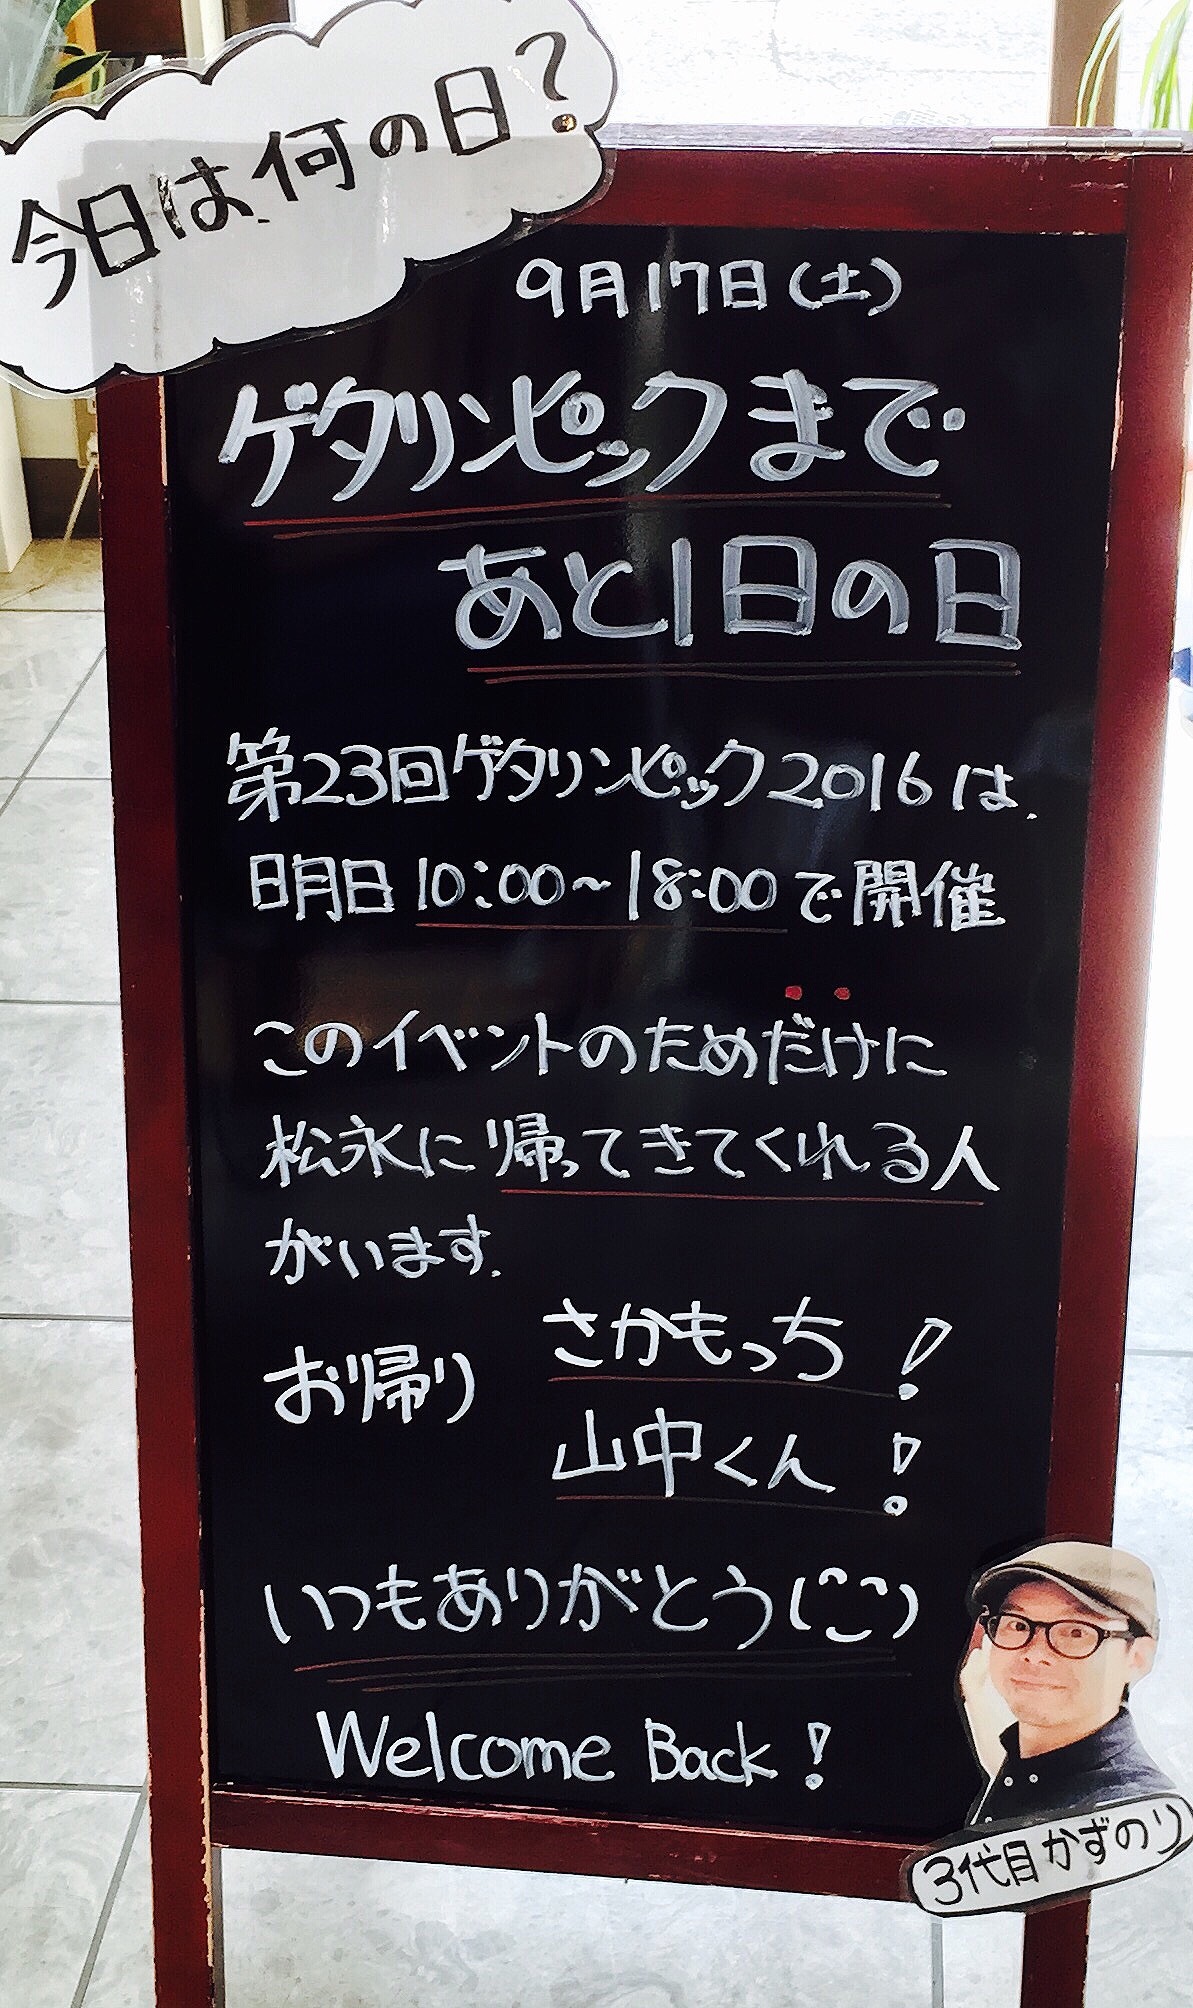 今日は、何の日?
9月17日(土)
ゲタリンピックまで
あと1日の日
第23回ゲタリンピック2016は、
明日10:00~18:00で開催
このイベントのためだけに
松永に帰ってきてくれる人
がいます。
お帰り さかもっち!
山中くん!
いつもありがとう(^^)
Welcome Back!
3代目かずのり